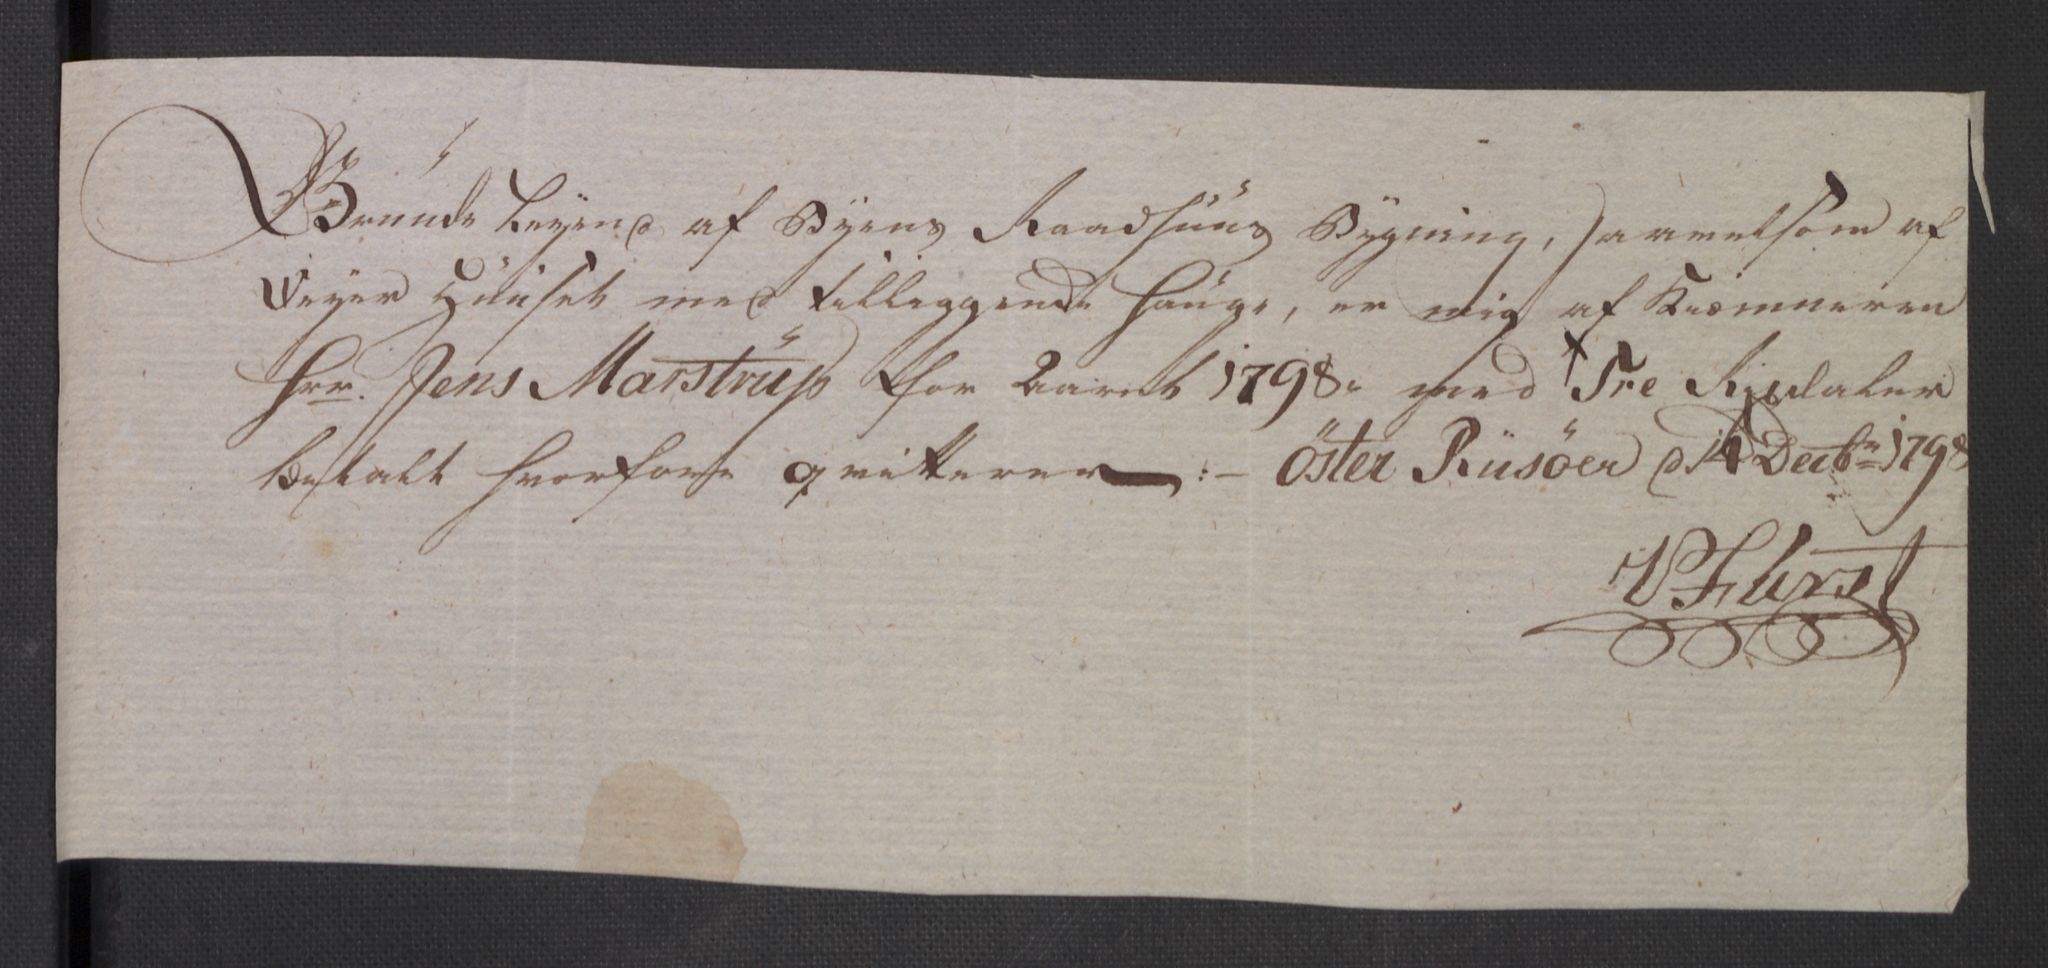 Grunde Leyen af Byens Raadhuus Bygning, saavelsom af
Veyer Huuset med tilliggende Hauge, er mig af Kiemneren
Hrr. Jens Marstrup for Aaret 1798 med Tre Rixdaler
betalt hvorfore qvitterer :- Öster Riisöer d 14 Decbr 1798
V Fürst